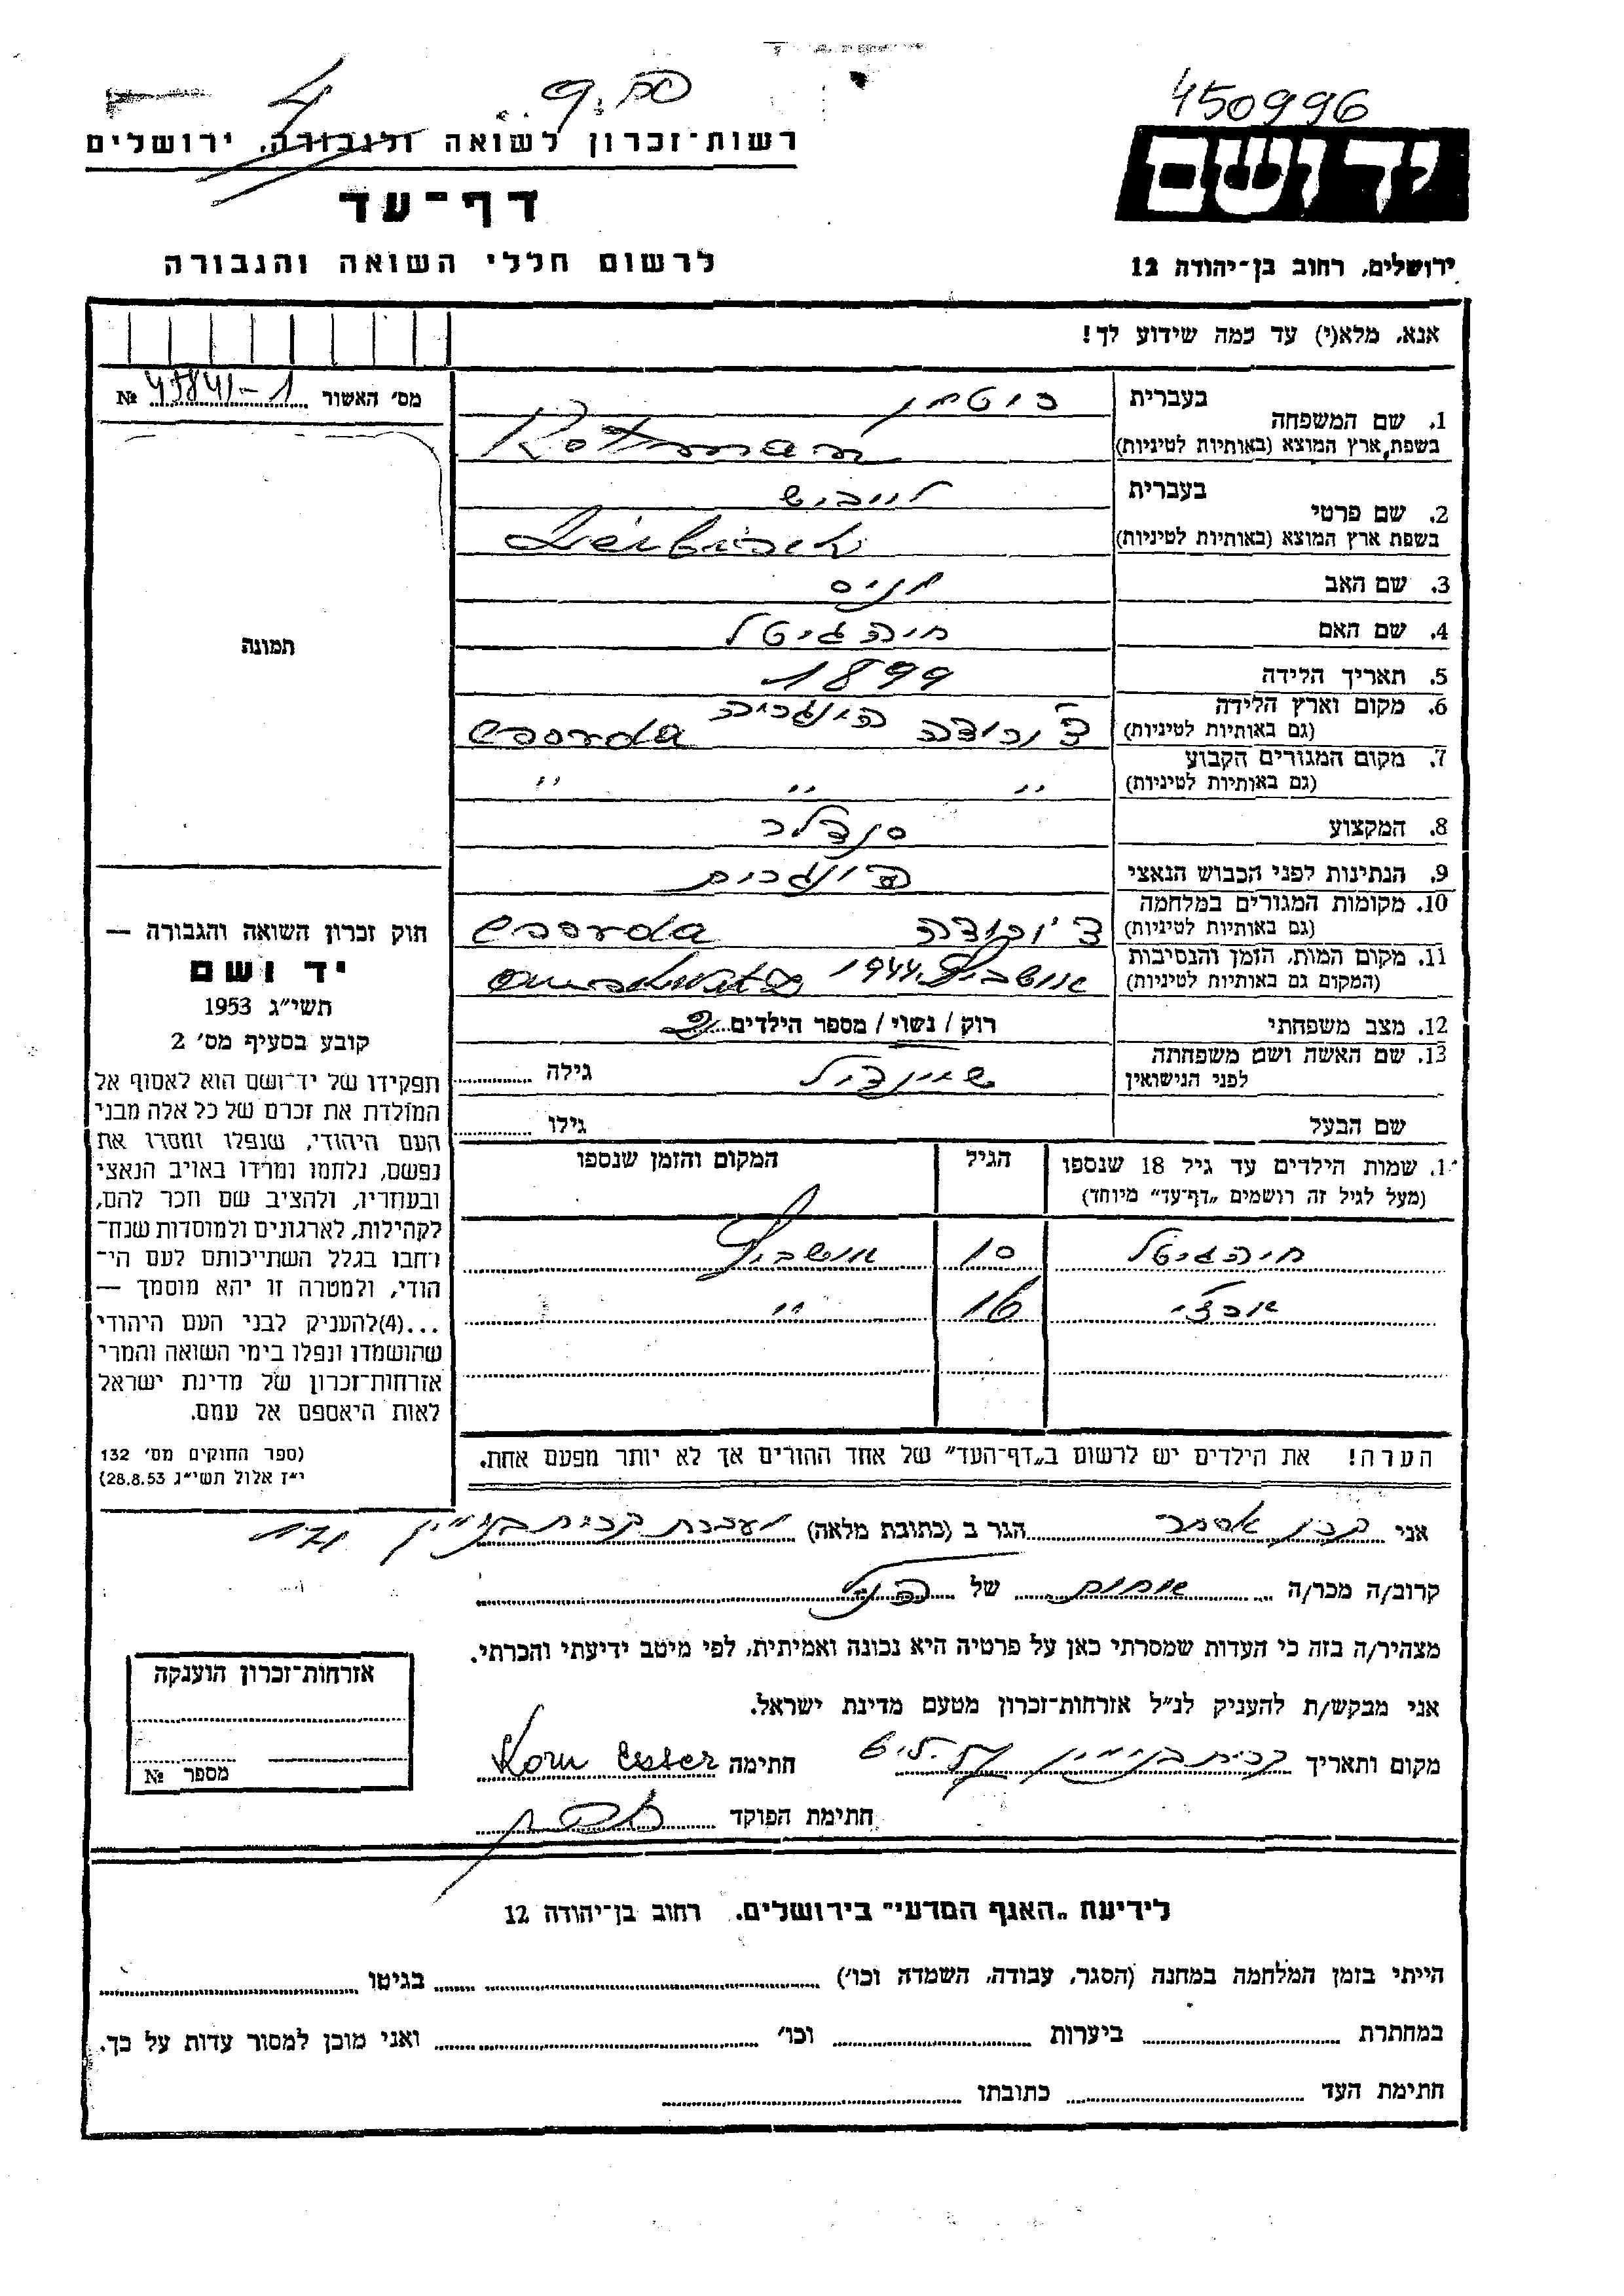 450996
רשות־זכרון לשואה ולגבורה, ירושלים
יד ושם
דף־עד
לרשום חללי השואה והגבורה
ירושלים, רחוב בן־יהודה 12
אנא, מלא(י) עד כמה שידוע לך!
מס׳ האשור №
1. שם המשפחה
בעברית רוטמן
בשפת ארץ המוצא (באותיות לטיניות) Rotman
2. שם פרטי
בעברית לייביש
בשפת ארץ המוצא (באותיות לטיניות)
3. שם האב
4. שם האם חיה גיטל
5. תאריך הלידה 1899
6. מקום וארץ הלידה הונגריה
(גם באותיות לטיניות) csorda
7. מקום המגורים הקבוע
(גם באותיות לטיניות) ״ ״ ״
8. המקצוע סנדלר
9. הנתינות לפני הכבוש הנאצי
10. מקומות המגורים במלחמה
(גם באותיות לטיניות) csorda
11. מקום המות, הזמן והנסיבות
(המקום גם באותיות לטיניות) אושביץ 1944
12. מצב משפחתי רוק / נשוי / מספר הילדים 2
13. שם האשה ושם משפחתה
לפני הנישואין שיינדיל גילה
שם הבעל גילו
1. שמות הילדים עד גיל 18 שנספו הגיל המקום והזמן שנספו
(מעל לגיל זה רושמים „דף־עד״ מיוחד)
חיה גיטל 10 אושביץ
16 ״
הערה! את הילדים יש לרשום ב„דף־העד״ של אחד ההורים אך לא יותר מפעם אחת.
תמונה
חוק זכרון השואה והגבורה —
יד ושם
תשי״ג 1953
קובע בסעיף מס׳ 2
תפקידו של יד־ושם הוא לאסוף אל
המולדת את זכרם של כל אלה מבני
העם היהודי, שנפלו ומסרו את
נפשם, נלחמו ומרדו באויב הנאצי
ובעוזריו, ולהציב שם וזכר להם,
לקהילות, לארגונים ולמוסדות שנח־
רחבו בגלל השתייכותם לעם הי־
הודי, ולמטרה זו יהא מוסמך —
...(4)להעניק לבני העם היהודי
שהושמדו ונפלו בימי השואה והמרי
אזרחות־זכרון של מדינת ישראל
לאות היאספם אל עמם.
(ספר החוקים מס׳ 132
י״ז אלול תשי״ג 28.8.53)
אני קורן אסתר הגר ב (כתובת מלאה)
קרוב/ה מכר/ה אחות של הנ״ל
מצהיר/ה בזה כי העדות שמסרתי כאן על פרטיה היא נכונה ואמיתית, לפי מיטב ידיעתי והכרתי.
אני מבקש/ת להעניק לנ״ל אזרחות־זכרון מטעם מדינת ישראל.
מקום ותאריך קרית בנימין חתימה Korn Eszter
חתימת הפוקד
אזרחות־זכרון הוענקה
מספר №
לידיעת „האגף המדעי״ בירושלים, רחוב בן־יהודה 12
הייתי בזמן המלחמה במחנה (הסגר, עבודה, השמדה וכו׳) בגיטו
במחתרת ביערות וכו׳ ואני מוכן למסור עדות על כך.
חתימת העד כתובתו